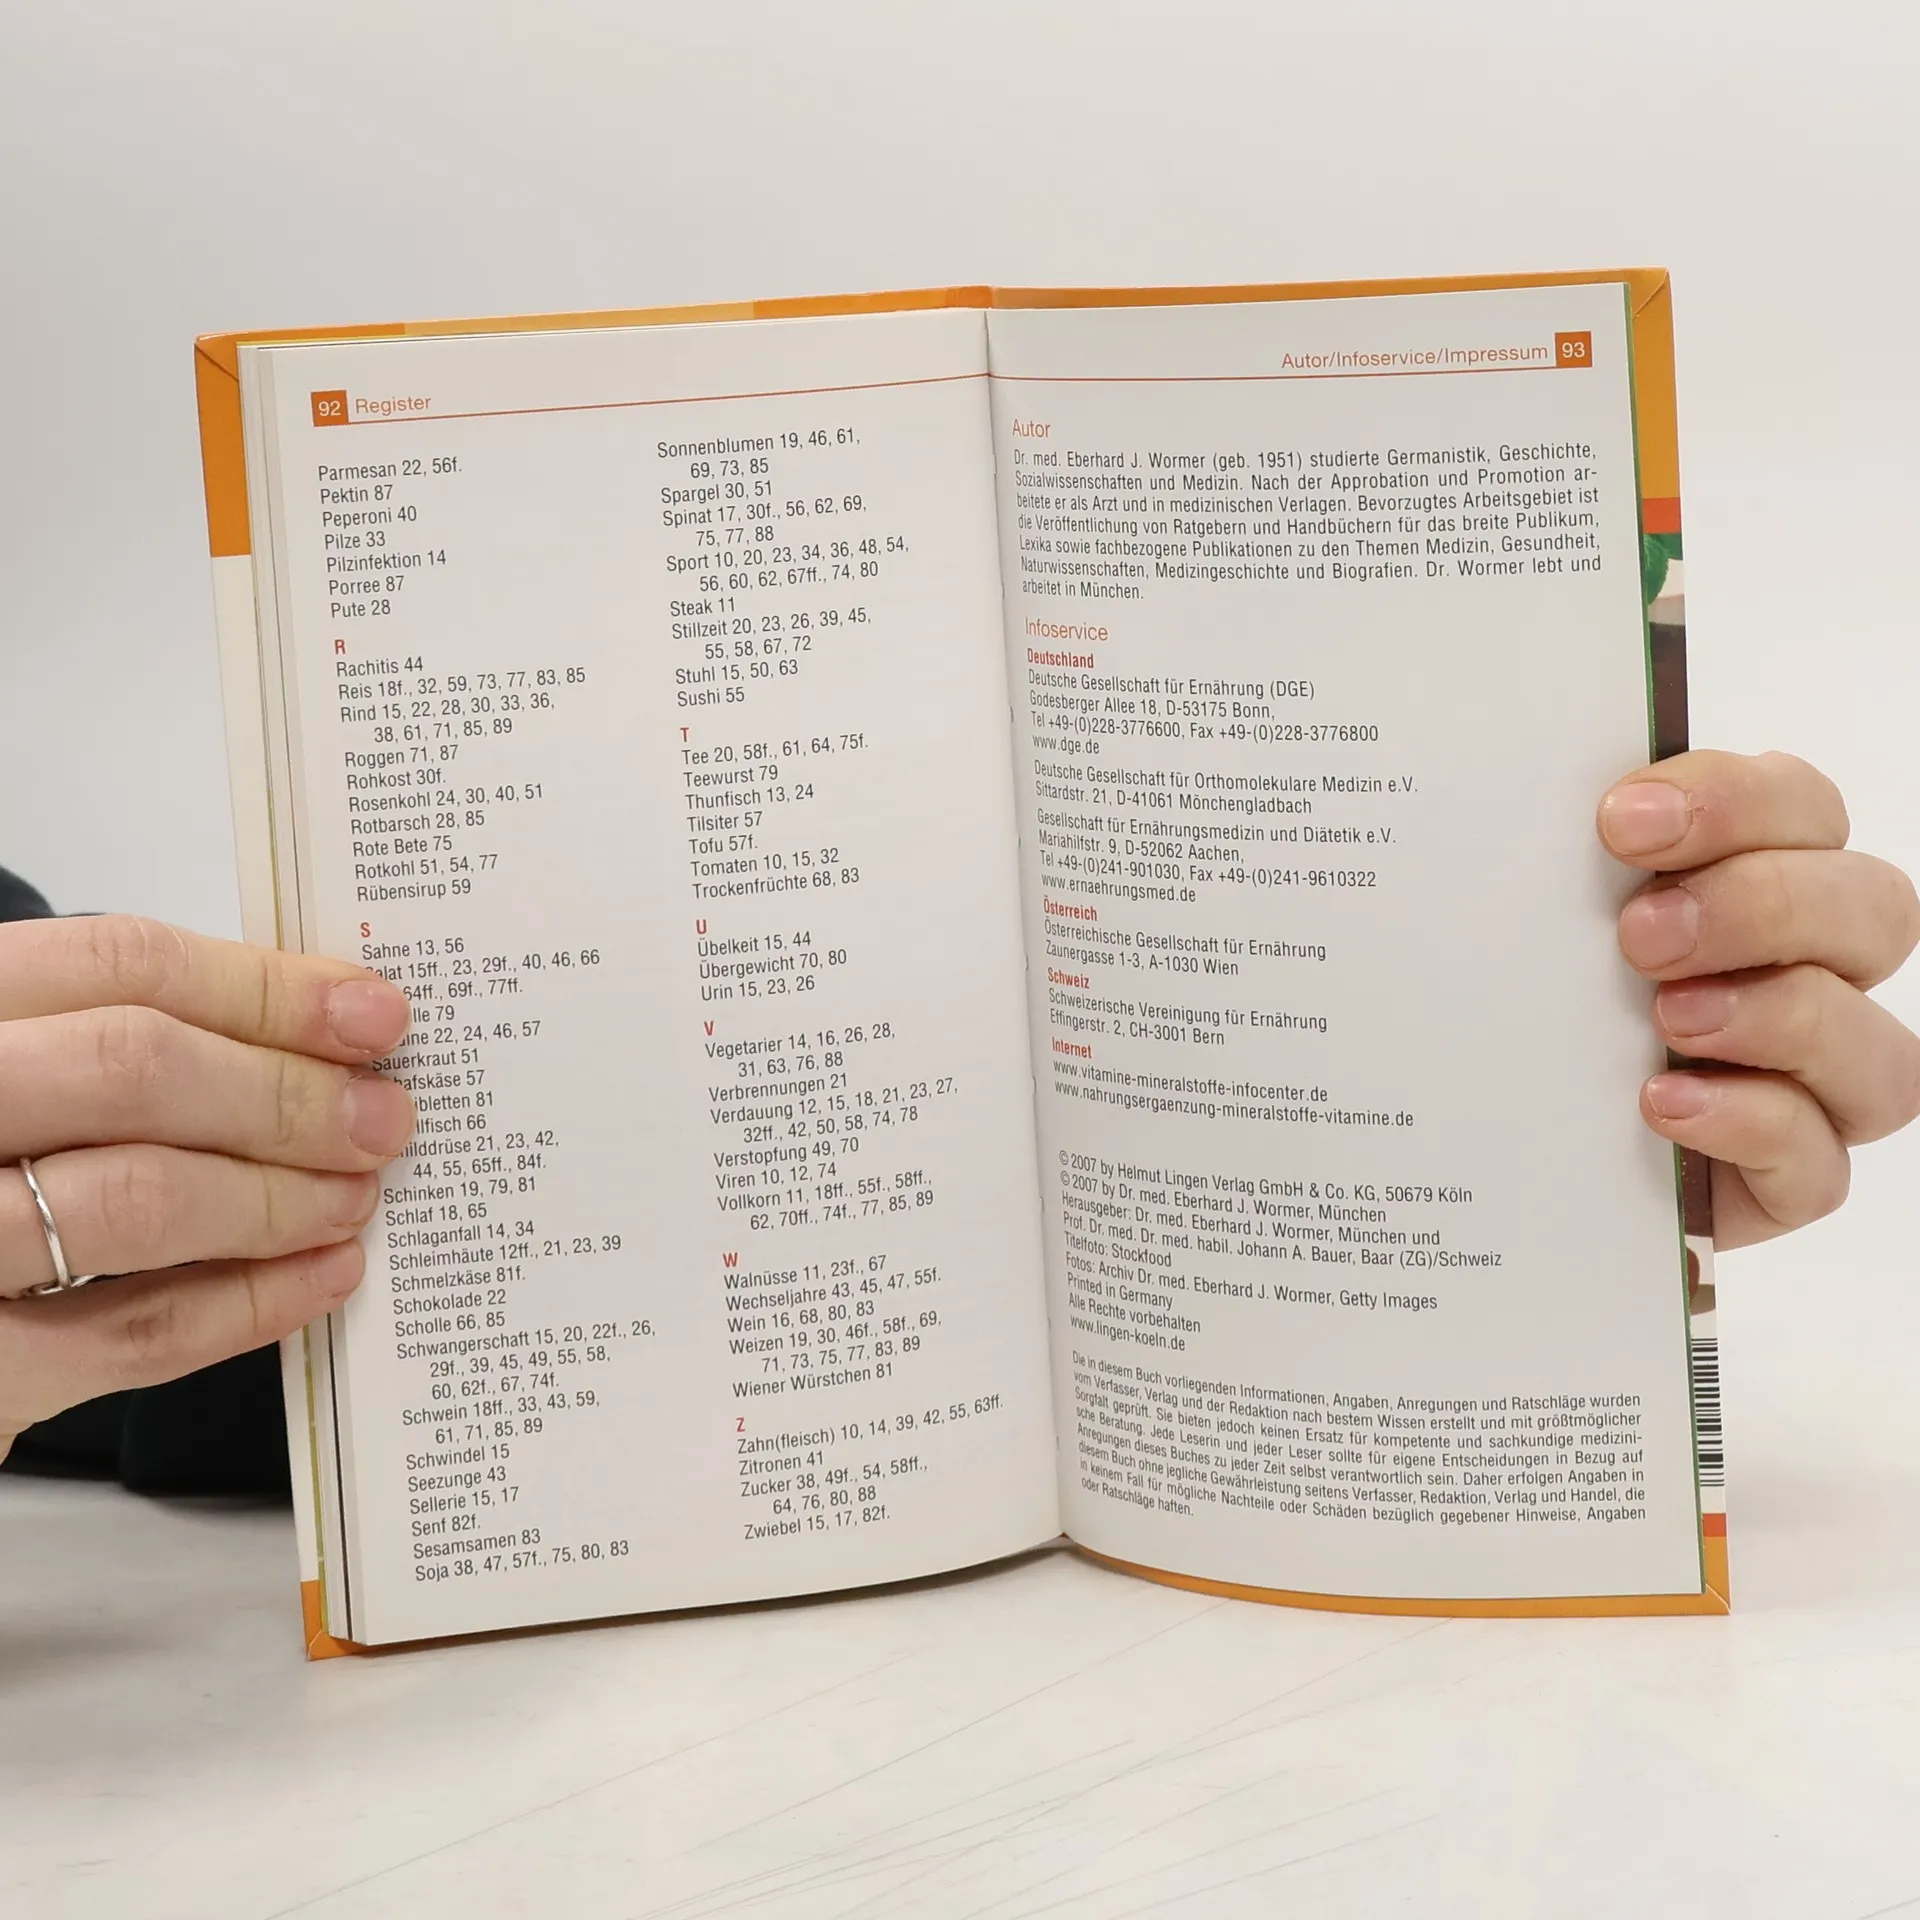 92 Register
Parmesan 22, 56f.
Pektin 87
Peperoni 40
Pilze 33
Pilzinfektion 14
Porree 87
Pute 28
R
Rachitis 44
Reis 18f., 32, 59, 73, 77, 83, 85
Rind 15, 22, 28, 30, 33, 36,
38, 61, 71, 85, 89
Roggen 71, 87
Rohkost 30f.
Rosenkohl 24, 30, 40, 51
Rotbarsch 28, 85
Rote Bete 75
Rotkohl 51, 54, 77
Rübensirup 59
S
Sahne 13, 56
Salat 15ff., 23, 29f., 40, 46, 66
64ff., 69f., 77ff.
79
22, 24, 46, 57
Sauerkraut 51
57
81
66
21, 23, 42,
44, 55, 65ff., 84f.
Schinken 19, 79, 81
Schlaf 18, 65
Schlaganfall 14, 34
Schleimhäute 12ff., 21, 23, 39
Schmelzkäse 81f.
Schokolade 22
Scholle 66, 85
Schwangerschaft 15, 20, 22f., 26,
29f., 39, 45, 49, 55, 58,
60, 62f., 67, 74f.
Schwein 18ff., 33, 43, 59,
61, 71, 85, 89
Schwindel 15
Seezunge 43
Sellerie 15, 17
Senf 82f.
Sesamsamen 83
Soja 38, 47, 57f., 75, 80, 83
Sonnenblumen 19, 46, 61,
69, 73, 85
Spargel 30, 51
Spinat 17, 30f., 56, 62, 69,
75, 77, 88
Sport 10, 20, 23, 34, 36, 48, 54,
56, 60, 62, 67ff., 74, 80
Steak 11
Stillzeit 20, 23, 26, 39, 45,
55, 58, 67, 72
Stuhl 15, 50, 63
Sushi 55
T
Tee 20, 58f., 61, 64, 75f.
Teewurst 79
Thunfisch 13, 24
Tilsiter 57
Tofu 57f.
Tomaten 10, 15, 32
Trockenfrüchte 68, 83
U
Übelkeit 15, 44
Übergewicht 70, 80
Urin 15, 23, 26
V
Vegetarier 14, 16, 26, 28,
31, 63, 76, 88
Verbrennungen 21
Verdauung 12, 15, 18, 21, 23, 27,
32ff., 42, 50, 58, 74, 78
Verstopfung 49, 70
Viren 10, 12, 74
Vollkorn 11, 18ff., 55f., 58ff.,
62, 70ff., 74f., 77, 85, 89
W
Walnüsse 11, 23f., 67
Wechseljahre 43, 45, 47, 55f.
Wein 16, 68, 80, 83
Weizen 19, 30, 46f., 58f., 69,
71, 73, 75, 77, 83, 89
Wiener Würstchen 81
Z
Zahn(fleisch) 10, 14, 39, 42, 55, 63ff.
Zitronen 41
Zucker 38, 49f., 54, 58ff.,
64, 76, 80, 88
Zwiebel 15, 17, 82f.
Autor/Infoservice/Impressum 93
Autor
Dr. med. Eberhard J. Wormer (geb. 1951) studierte Germanistik, Geschichte,
Sozialwissenschaften und Medizin. Nach der Approbation und Promotion ar-
beitete er als Arzt und in medizinischen Verlagen. Bevorzugtes Arbeitsgebiet ist
die Veröffentlichung von Ratgebern und Handbüchern für das breite Publikum,
Lexika sowie fachbezogene Publikationen zu den Themen Medizin, Gesundheit,
Naturwissenschaften, Medizingeschichte und Biografien. Dr. Wormer lebt und
arbeitet in München.
Infoservice
Deutschland
Deutsche Gesellschaft für Ernährung (DGE)
Godesberger Allee 18, D-53175 Bonn,
Tel +49-(0)228-3776600, Fax +49-(0)228-3776800
www.dge.de
Deutsche Gesellschaft für Orthomolekulare Medizin e.V.
Sittardstr. 21, D-41061 Mönchengladbach
Gesellschaft für Ernährungsmedizin und Diätetik e.V.
Mariahilfstr. 9, D-52062 Aachen,
Tel +49-(0)241-901030, Fax +49-(0)241-9610322
www.ernaehrungsmed.de
Österreich
Österreichische Gesellschaft für Ernährung
Zaunergasse 1-3, A-1030 Wien
Schweiz
Schweizerische Vereinigung für Ernährung
Effingerstr. 2, CH-3001 Bern
Internet
www.vitamine-mineralstoffe-infocenter.de
www.nahrungsergaenzung-mineralstoffe-vitamine.de
© 2007 by Helmut Lingen Verlag GmbH & Co. KG, 50679 Köln
© 2007 by Dr. med. Eberhard J. Wormer, München
Herausgeber: Dr. med. Eberhard J. Wormer, München und
Prof. Dr. med. Dr. med. habil. Johann A. Bauer, Baar (ZG)/Schweiz
Titelfoto: Stockfood
Fotos: Archiv Dr. med. Eberhard J. Wormer, Getty Images
Printed in Germany
Alle Rechte vorbehalten
www.lingen-koeln.de
Die in diesem Buch vorliegenden Informationen, Angaben, Anregungen und Ratschläge wurden
vom Verfasser, Verlag und der Redaktion nach bestem Wissen erstellt und mit größtmöglicher
Sorgfalt geprüft. Sie bieten jedoch keinen Ersatz für kompetente und sachkundige medizini-
sche Beratung. Jede Leserin und jeder Leser sollte für eigene Entscheidungen in Bezug auf
Anregungen dieses Buches zu jeder Zeit selbst verantwortlich sein. Daher erfolgen Angaben in
diesem Buch ohne jegliche Gewährleistung seitens Verfasser, Redaktion, Verlag und Handel, die
in keinem Fall für mögliche Nachteile oder Schäden bezüglich gegebener Hinweise, Angaben
oder Ratschläge haften.